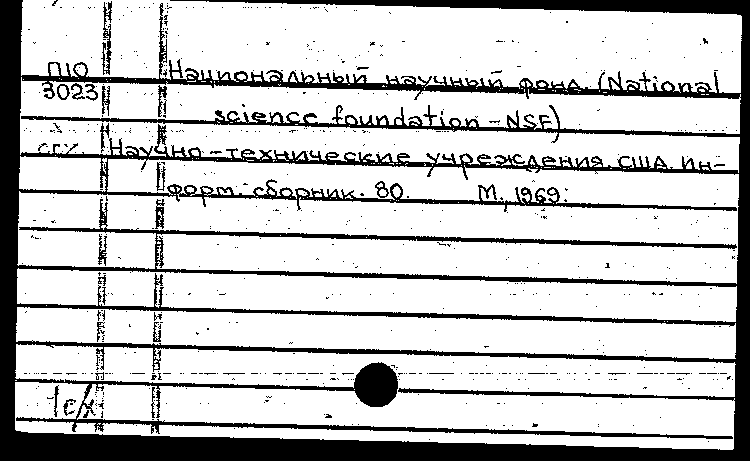 П10
3023
Национальный научный фонд (National
science foundation - NSF)
Научно-технические учреждения США. Ин-
форм. сборник. 80. М., 1969.
1 с/х